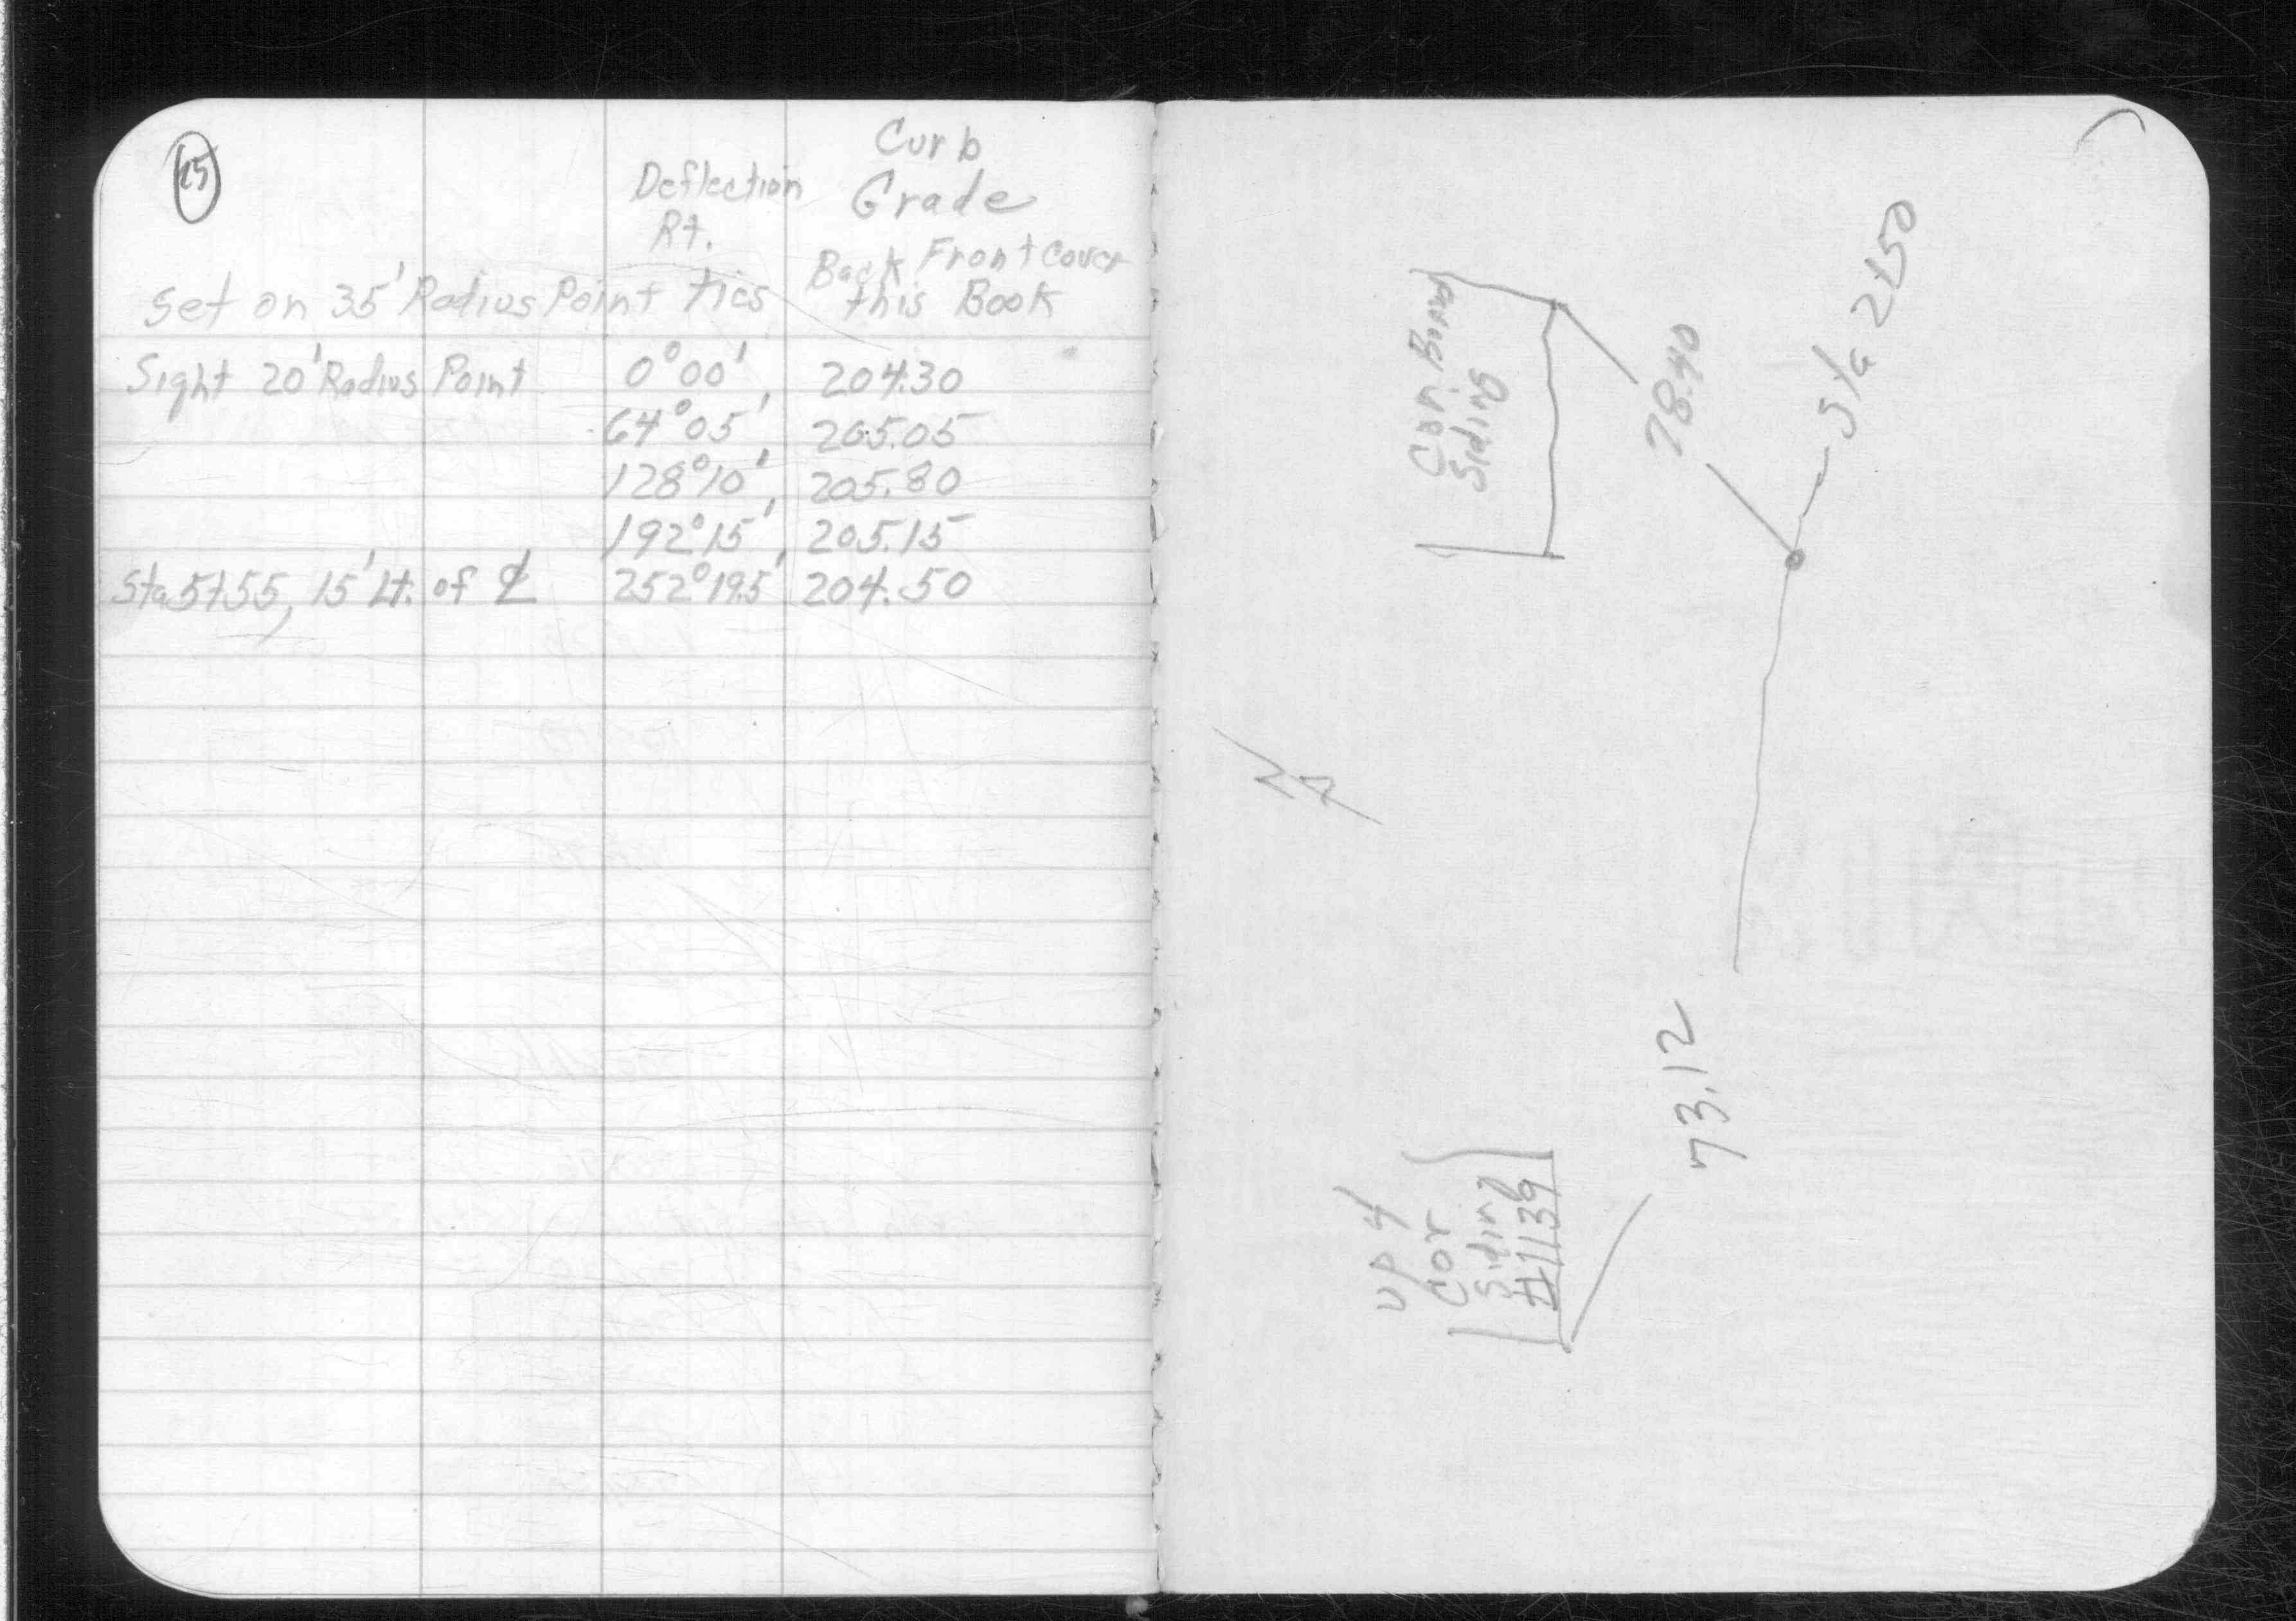 25
Curb
Deflection Grade
Rt.
Back Front Cover
Set on 35' Radius Point ties this Book
Sight 20' Radius Point 0°00' 204.30
64°05' 205.05
128°10' 205.80
192°15' 205.15
Sta 5+55, 15' Lt. of ℄ 252°19.5' 204.50
Sta 2+50
78.40
Cor.
Siding
N
73.12
UP 4
Cor
Siding
#1139